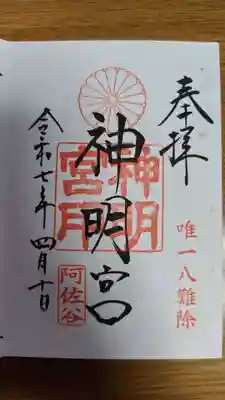 奉拝
唯一八難除
神明宮
神明
宮月
阿佐谷
令和七年四月十日